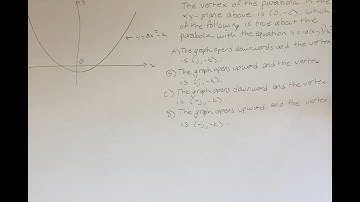 The vertex of the parabola in the
xy-plane above is (0,-k). Which
of the following is true about the
parabola with the equation
A) The graph opens downwards and the vertex
is (j,-k).
B) The graph opens upward and the vertex
is (j,-k).
C) The graph opens downward and the vertex
is (-j,-k).
D) The graph opens upward and the vertex
is (-j,-k).
y
y=ax²-k
x
0